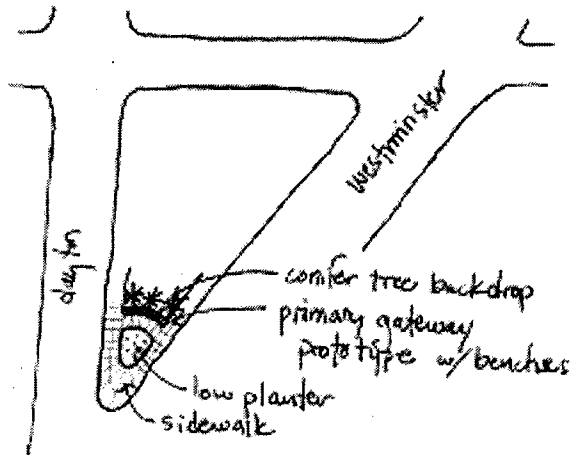 Westminster
dayton
conifer tree backdrop
primary gateway
prototype w/ benches
low planter
sidewalk